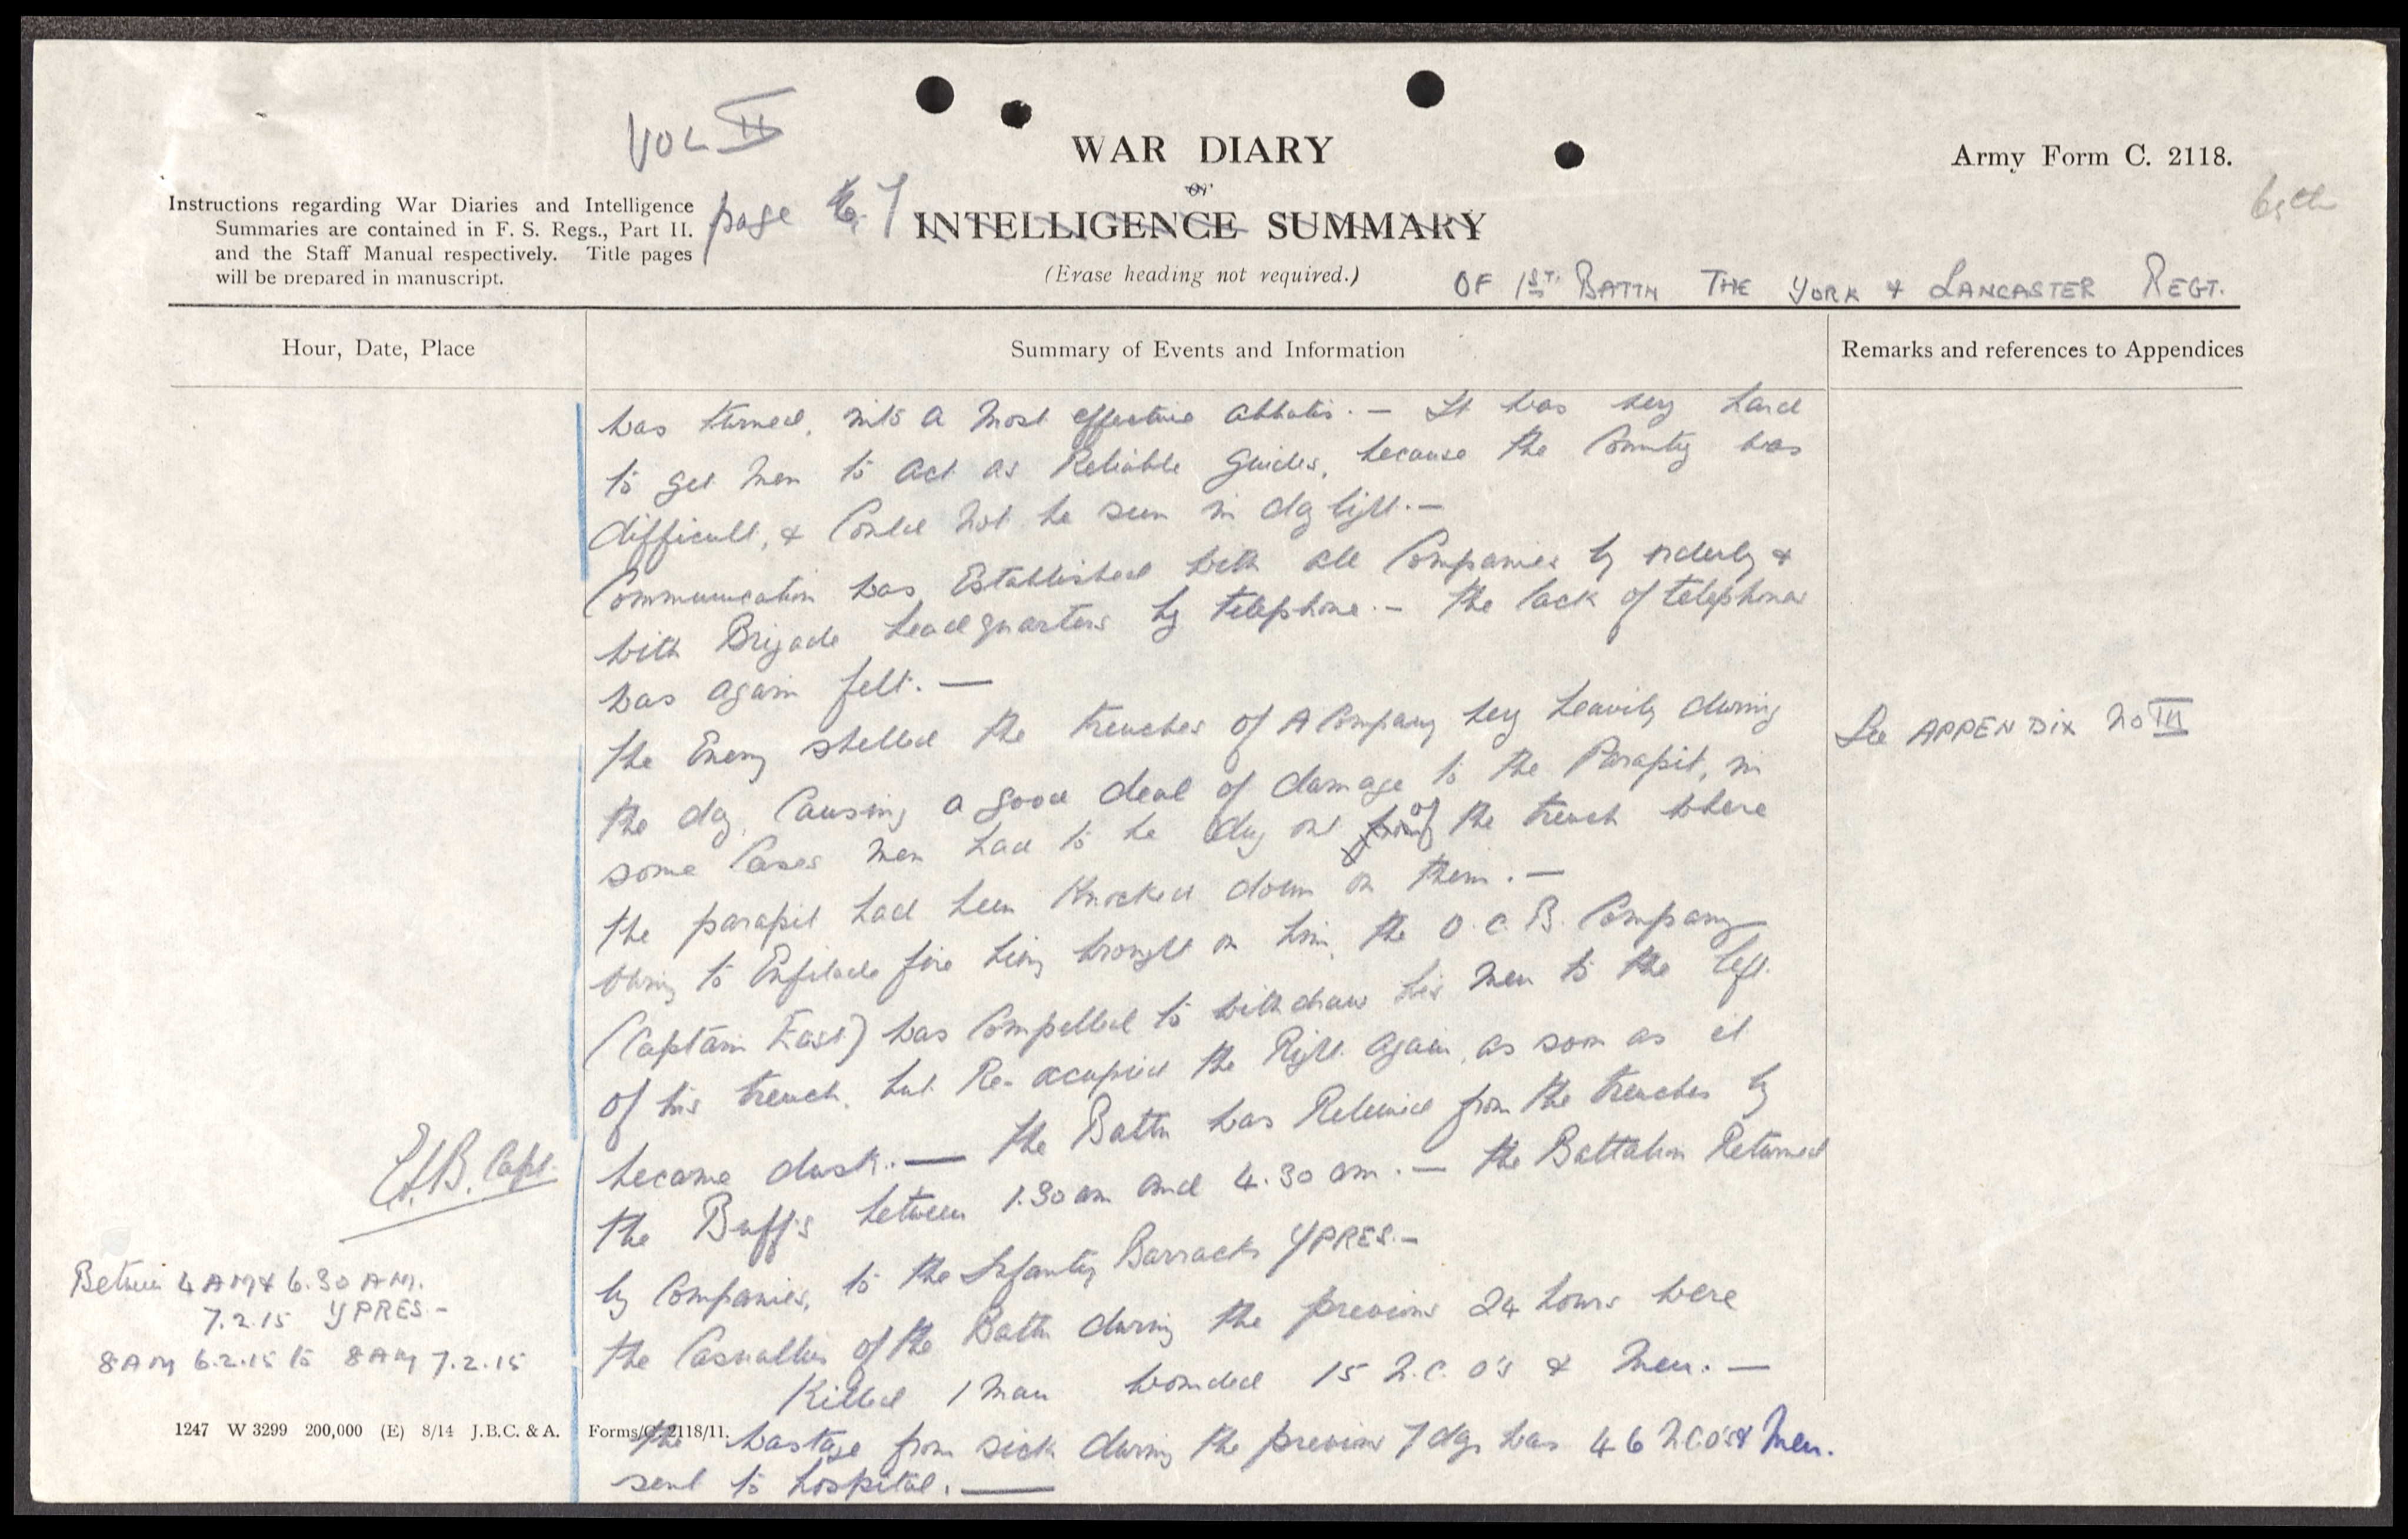 VOL II
WAR DIARY
Army Form C. 2118.
or
Instructions regarding War Diaries and Intelligence
Summaries are contained in F. S. Regs., Part II.
and the Staff Manual respectively. Title pages
will be prepared in manuscript.
page 7
INTELLIGENCE SUMMARY
(Erase heading not required.)
OF 1ST. BATTN THE YORK & LANCASTER REGT.
Hour, Date, Place
Summary of Events and Information
Remarks and references to Appendices
was turned, into a most effective abbatis. — It was very hard
to get men to act as Reliable guides, because the Country was
difficult, & could not be seen in day light. —
Communication was Established with all Companies by orderly &
with Brigade headquarters by telephone. — The lack of telephones
was again felt. —
The Enemy shelled the trenches of A Company very heavily during
See APPENDIX No III
the day, Causing a good deal of damage to the Parapit, in
some Cases men had to be dug out of the trench where
the parapit had been Knocked down on them. —
Owing to Enfilade fire being brought on him, the O.C. B. Company
(Captain East) was Compelled to withdraw his men to the left
of his trench, but Re-occupied the Right again, as soon as it
became dusk. — The Battn was Relieved from the trenches by
the Buffs between 1.30 am and 4.30 am. — The Battalion Returned
by Companies, to the Infantry Barracks YPRES. —
Capt.
Between 4 AM & 6.30 AM.
7.2.15 YPRES. —
8 AM 6.2.15 to 8 AM 7.2.15
the Casualties of the Battn during the previous 24 hours were
Killed 1 Man wounded 15 N.C.O's & Men. —
1247 W 3299 200,000 (E) 8/14 J.B.C. & A. Forms/C. 2118/11.
The wastage from sick during the previous 7 days was 46 NCO's & Men.
sent to hospital. —